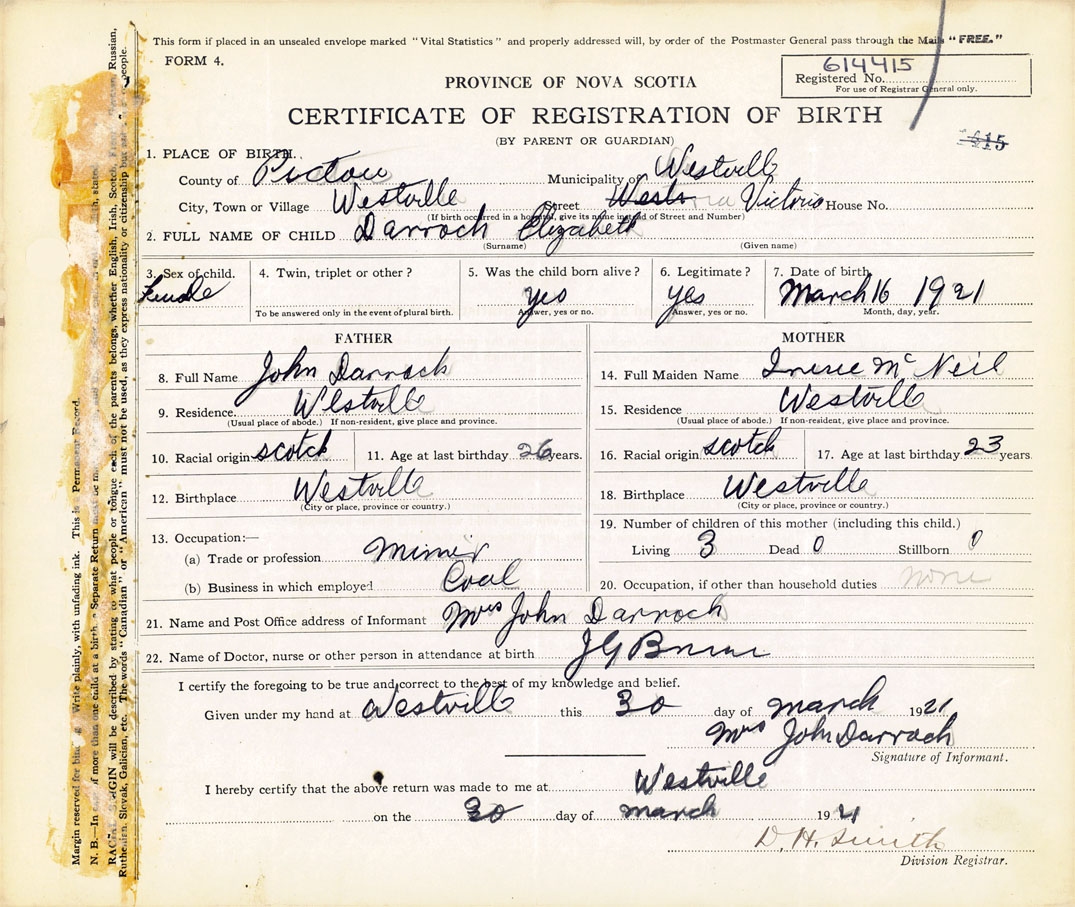 This form if placed in an unsealed envelope marked "Vital Statistics" and properly addressed will, by order of the Postmaster General pass through the Mails "FREE."
FORM 4.
614415
Registered No.
For use of Registrar General only.
PROVINCE OF NOVA SCOTIA
CERTIFICATE OF REGISTRATION OF BIRTH
(BY PARENT OR GUARDIAN)
15
1. PLACE OF BIRTH.
County of Pictou Municipality of Westville
City, Town or Village Westville Street Victoria House No.
(If birth occurred in a hospital, give its name instead of Street and Number)
2. FULL NAME OF CHILD Darroch Elizabeth
(Surname) (Given name)
3. Sex of child. 4. Twin, triplet or other? 5. Was the child born alive? 6. Legitimate? 7. Date of birth
Female yes yes March 16 1921
To be answered only in the event of plural birth. Answer, yes or no. Answer, yes or no. Month, day, year.
FATHER MOTHER
8. Full Name John Darroch 14. Full Maiden Name McNeil
9. Residence. Westville 15. Residence Westville
(Usual place of abode.) If non-resident, give place and province. (Usual place of abode.) If non-resident, give place and province.
10. Racial origin scotch 11. Age at last birthday 26 years. 16. Racial origin scotch 17. Age at last birthday 23 years
12. Birthplace Westville 18. Birthplace Westville
(City or place, province or country.) (City or place, province or country.)
13. Occupation:— 19. Number of children of this mother (including this child.)
(a) Trade or profession Miner Living 3 Dead 0 Stillborn 0
(b) Business in which employed Coal 20. Occupation, if other than household duties none
21. Name and Post Office address of Informant Mrs John Darroch
22. Name of Doctor, nurse or other person in attendance at birth J G
I certify the foregoing to be true and correct to the best of my knowledge and belief.
Given under my hand at Westville this 30 day of march 1921
Mrs John Darroch
Signature of Informant.
I hereby certify that the above return was made to me at Westville
on the 30 day of march 1921
D. H. Smith
Division Registrar.
Margin reserved for binding. Write plainly, with unfading ink. This is a Permanent Record.
N. B.—In of more than one child at a birth, a Separate Return must be
RACIAL ORIGIN will be described by stating to what people or tongue each of the parents belongs, whether English, Irish, Scotch, Russian,
Ruthenian, Slovak, Galician, etc. The words "Canadian" or "American" must not be used, as they express nationality or citizenship but not a people.